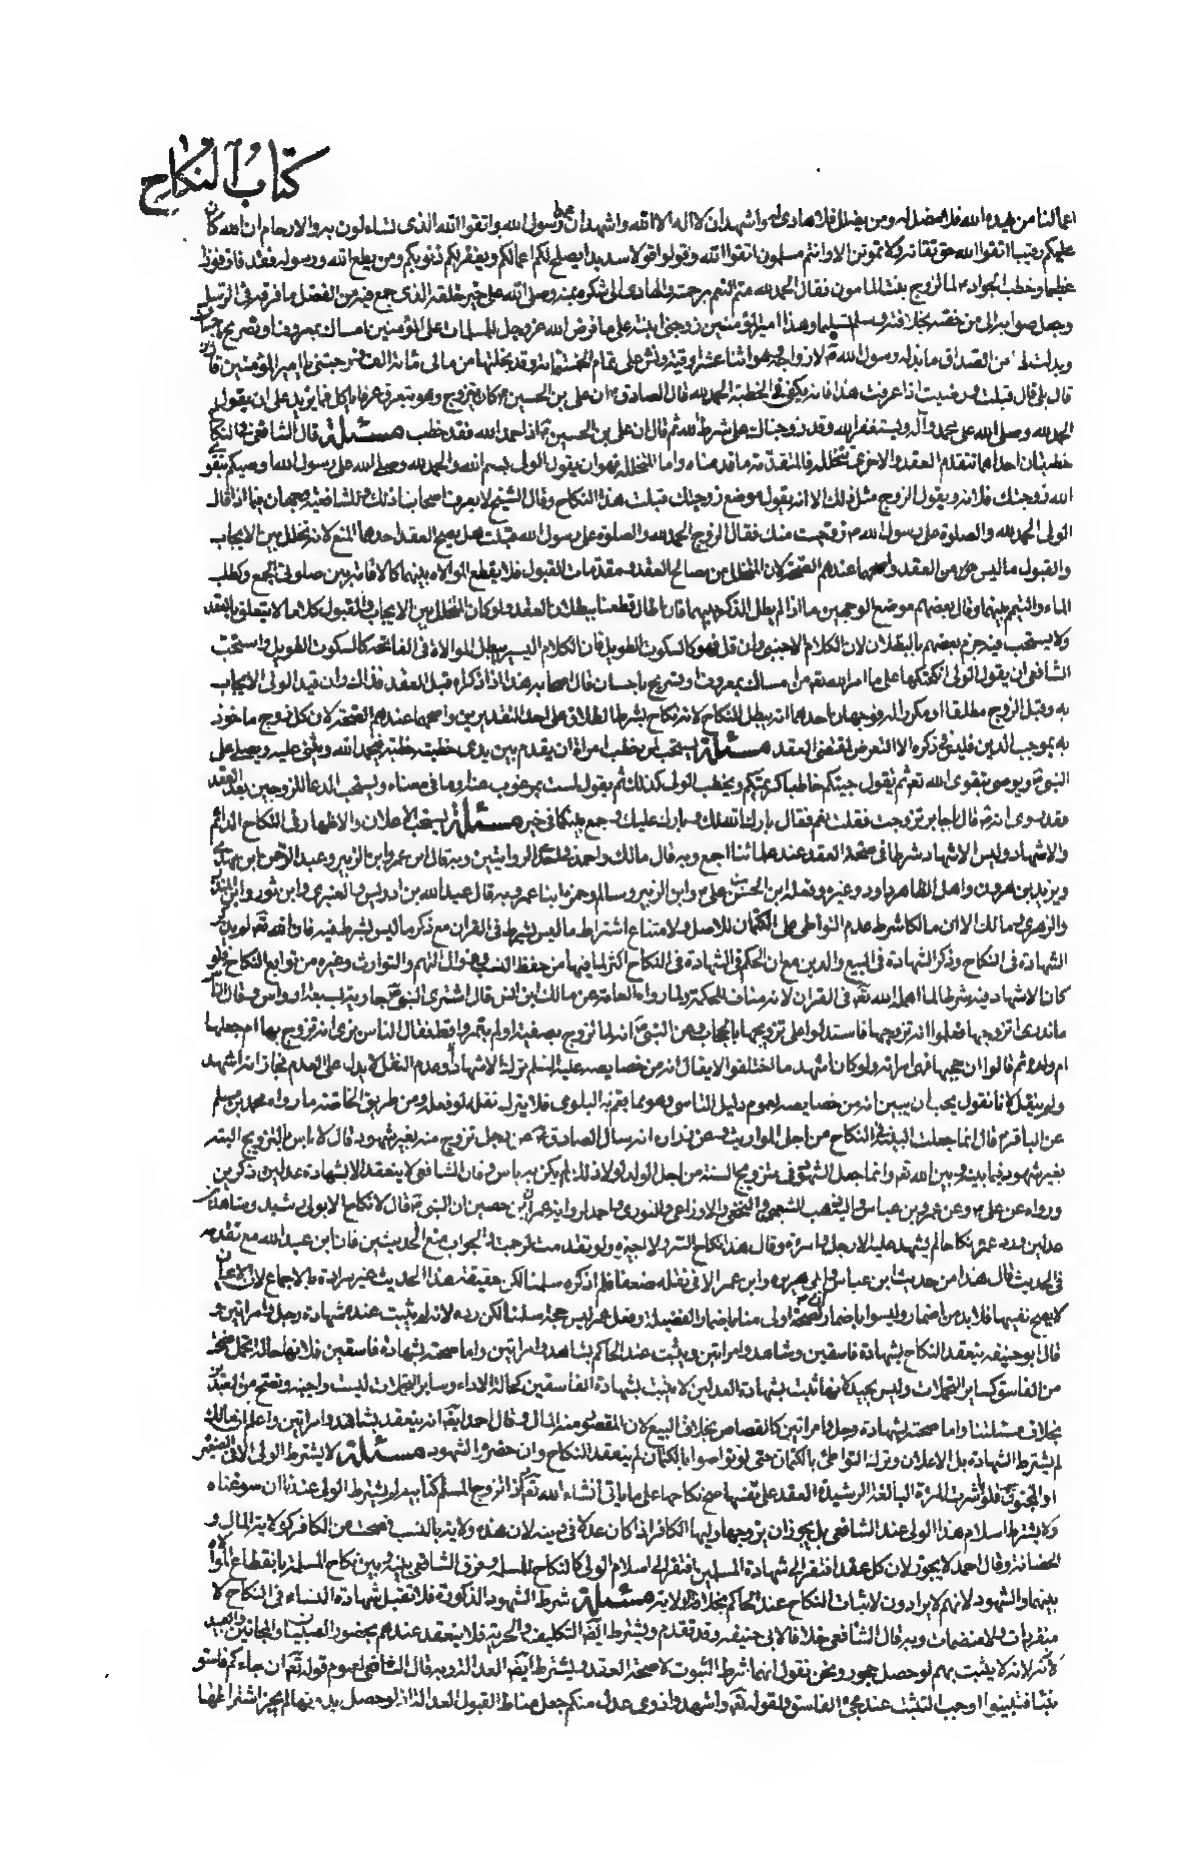 كتاب النكاح
اعمالنا من يهده الله فلا مضل له ومن يضلل فلا هادى له واشهد ان لا اله الا الله واشهد ان محمدا رسول الله واتقوا الله الذى تساءلون به والارحام ان الله كان
عليكم رقيبا اتقوا الله حق تقاته ولا تموتن الا وانتم مسلمون اتقوا الله وقولوا قولا سديدا يصلح لكم اعمالكم ويغفر لكم ذنوبكم ومن يطع الله ورسوله فقد فاز فوزا
عظيما وخطب الجواد ع لما تزوج بنت المامون فقال الحمد لله متم النعم برحمته والهادى الى شكره بمنه وصلى الله على خير خلقه الذى جمع فيه من الفضل ما فرقه فى الرسل
وجعل تراثه الى من خصه بخلافته وسلم تسليما وهذا امير المؤمنين زوجنى ابنته على ما فرض الله عز وجل للمسلمات على المؤمنين من امساك بمعروف او تسريح باحسان
وبذلت لها من الصداق ما بذله رسول الله ص لازواجه وهو اثنا عشر اوقية ونش على تمام الخمسمائة وقد نحلتها من مالى مائة الف زوجتنى يا امير المؤمنين
قال بلى قال قبلت ورضيت اذا عرفت هذا فانه يكفى فى الخطبة الحمد لله قال الصادق ع ان على بن الحسين ع كان يتزوج وهو يتعرق عرقا ياكل فما يزيد على ان يقول
الحمد لله وصلى الله على محمد وآله ويستغفر الله وقد زوجناك على شرط الله ثم قال ان على بن الحسين ع اذا حمد الله فقد خطب مسئلة قال الشافعى وللنكاح
خطبتان احداهما تتقدم العقد والاخرى تتخلله فالمتقدمة ما قدمناه واما المتخللة فهو ان يقول الولى بسم الله والحمد لله وصلى الله على رسول الله اوصيكم بتقوى
الله زوجتك فلانة ويقول الزوج مثل ذلك الا انه يقول موضع زوجتك قبلت هذا النكاح وقال الشيخ لا يعرف اصحابنا ذلك وللشافعية وجهان فيما اذا قال
الولى الحمد لله والصلوة على رسول الله ص زوجت منك فقال الزوج الحمد لله والصلوة على رسول الله قبلت هل يصح العقد احدهما المنع لانه تخلل بين الايجاب
والقبول ما ليس من العقد واصحهما عندهم الصحة لان المتخلل من مصالح العقد ومقدمات القبول فلا يقطع الموالاة بينهما كالاقامة بين صلوتى الجمع وكطلب
الماء والتيمم بينهما وقال بعضهم موضع الوجهين ما اذا لم يطل الذكر بينهما فان طال قطعنا ببطلان العقد ولو كان المتخلل بين الايجاب والقبول كلاما لا يتعلق بالعقد
ولا يستحب فيه جزم بعضهم بالبطلان لان الكلام الاجنبى وان قل فهو كالسكوت الطويل فان الكلام اليسير يبطل الموالاة فى الفاتحة كالسكوت الطويل واستحب
الشافعى ان يقول الولى انكحتكها على ما امر الله تعالى من امساك بمعروف او تسريح باحسان قال اصحابه هذا اذا ذكراه قبل العقد فذاك وان قيد الولى الايجاب
به وقبل الزوج مطلقا او مكررا له فوجهان احدهما انه يبطل النكاح لانه نكاح بشرط الطلاق على احد التقديرين واصحهما عندهم الصحة لان كل زوج ماخوذ
به بموجب الدين فليس فى ذكره الا التعرض لمقتضى العقد مسئلة يستحب لمن يخطب امراة ان يقدم بين يدى خطبته خطبة فيحمد الله ويثنى عليه ويصلى على
النبى ص ويوصى بتقوى الله تعالى ثم يقول جيتكم خاطبا كريمتكم ويخطب الولى كذلك ثم يقول لست بمرغوب عنك او ما فى معناه ويستحب الدعا للزوجين بعد العقد
فقد روى انه ص قال لجابر تزوجت فقلت نعم فقال بارك الله لك وبارك عليك وجمع بينكما فى خير مسئلة يستحب الاعلان والاظهار فى النكاح الدائم
والاشهاد وليس الاشهاد شرطا فى صحة العقد عند علمائنا اجمع وبه قال مالك واحمد فى احدى الروايتين وبه قال ابن عمر وابن الزبير وعبد الرحمن بن مهدى
ويزيد بن هرون واهل الظاهر داود وغيره وفعله ابن الحسن بن على ع وابن الزبير وسالم وحمزة ابنا عمر وبه قال عبد الله بن ادريس والعنبرى وابن ثور وابن المنذر
والزهرى ومالك الا ان مالكا شرط عدم التواطى على الكتمان للاصل ولامتناع اشتراط ما ليس بشرط فى القران مع ذكر ما ليس بشرط فيه فان الله تعالى لم يذكر
الشهادة فى النكاح وذكر الشهادة فى البيع والدين مع ان الحكمة فى الشهادة فى النكاح اكثر لما فيها من حفظ النسب وزوال التهم والتوارث وغيره من توابع النكاح فلو
كان الاشهاد فيه شرطا لما اهمله الله تعالى فى القران لانه مناف للحكمة ولما رواه العامة عن مالك ابن انس قال اشترى النبى ص جارية بسبعة ارؤس وقال الناس
ما ندرى اتزوجها ام جعلها
ام ولد ثم قالوا ان حجبها فهى امراته
ولم ينقل لانا نقول يجب ان يبين انه من خصايصه لعموم دليل التاسى وهو مما يعم به البلوى فلا يترك نقله لو فعله ومن طريق الخاصة ما رواه محمد بن مسلم
عن الباقر ع قال انما جعلت البينة فى النكاح من اجل المواريث وعن زرارة انه سال الصادق ع عن رجل تزوج بغير شهود قال لا باس بالتزويج البتة
بغير شهود فيما بينه وبين الله تعالى وانما جعل الشهود فى تزويج السنة من اجل الولد لولا ذلك لم يكن به باس وقال الشافعى لا ينعقد الا بشهادة عدلين ذكرين
ورواه عن على ع وعن عمر وبن عباس واليه ذهب الشعبى والنخعى والاوزاعى والثورى واحمد لرواية عمران بن حصين ان النبى ص قال لا نكاح الا بولى رشيد وشاهدى
عدلين ورد عمر نكاحا لم يشهد عليه الا رجل وامراة وقال هذا نكاح السر ولا اجيزه ولو تقدمت لرجمت والجواب منع الحديثين فان ابن عبد الله مع تقدمه
فى الحديث قال هذا من حديث ابن عباس وابى هريرة وابن عمر الا ان فى نقله ضعفا فلم اذكره سلمنا لكن حقيقة هذا الحديث غير مرادة بالاجماع لان الاعيان
لا يصح نفيها فلا بد من اضمار وليسوا باضمار الصحة اولى منا باضمار الفضيلة وفعل عمر ليس حجة سلمنا لكن رده لانه لم يثبت عنده بشهادة رجل وامراتين
قال ابو حنيفه ينعقد النكاح بشهادة فاسقين وشاهد وامراتين ويثبت عند الحاكم بشاهد وامراتين واما صحته بشهادة فاسقين فلانها حالة تحمل فصحت
من الفاسق كساير التحملات وليس بجيد لانها تثبت بشهادة العدلين لا يثبت بشهادة الفاسقين كحالة الاداء وساير التحملات ليست واجبة وتصح من العبد
بخلاف مسئلتنا واما صحته بشهادة رجل وامراتين كالقصاص بخلاف البيع لان المقصود منه المال وقال احمد ايضا انه ينعقد بشاهد وامراتين واعلم ان مالك
لم يشترط الشهادة بل الاعلان وترك التواطى بالكتمان حتى لو تواصوا بالكتمان لم ينعقد النكاح وان حضره الشهود مسئلة لا يشترط الولى الا فى الصغير
او المجنون فلو باشرت المراة البالغة الرشيدة العقد على نفسها صح نكاحها على ما ياتى انشاء الله تعالى ولو تزوج المسلم كتابية لم يشترط الولى عندنا ان سوغناه
ولا يشترط اسلام هذا الولى عند الشافعى بل يجوز ان يزوجها وليها الكافر اذا كان عدلا فى دينه لان هذه ولاية بالنسب فصحت من الكافر كولاية المال و
الحضانة وقال احمد لا يجوز لان كل عقد افتقر الى شهادة المسلمين افتقر الى اسلام الولى كالنكاح للمسلمة وفرق الشافعى بينه وبين نكاح المسلمة بانقطاع الموالاة
بينهما والشهود لانهم لا يرادون لاثبات النكاح عند الحاكم بخلاف الولاية مسئلة شرط الشهود الذكورة فلا تقبل شهادة النساء فى النكاح لا
منفردات ولا منضمات وبه قال الشافعى خلافا لابى حنيفه وقد تقدم ويشترط ايضا التكليف والحرية فلا ينعقد عندهم بحضور الصبيان والمجانين والعبيد
لانه لا يثبت بهم لو حصل جحود ونحن نقول انهما شرط الثبوت لا صحة العقد ويشترط ايضا العدالة وبه قال الشافعى لعموم قوله تعالى ان جاءكم فاسق
بنبا فتبينوا اوجب التثبت عند مجئ الفاسق ولقوله تعالى واشهدوا ذوى عدل منكم جعل مناط القبول العدالة